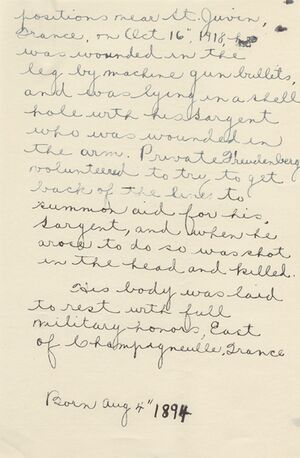 positions near St. Juvin,
France, on Oct 16", 1918, he
was wounded in the
leg by machine gun bullets,
and was lying in a shell
hole with his sargent
who was wounded in
the arm. Private Freudenberg
volunteered to try to get
back of the lines to
summon aid for his
sargent, and when he
arose to do so was shot
in the head and killed.
His body was laid
to rest with full
military honors, East
of Champigneulle, France
Born Aug 4" 1894